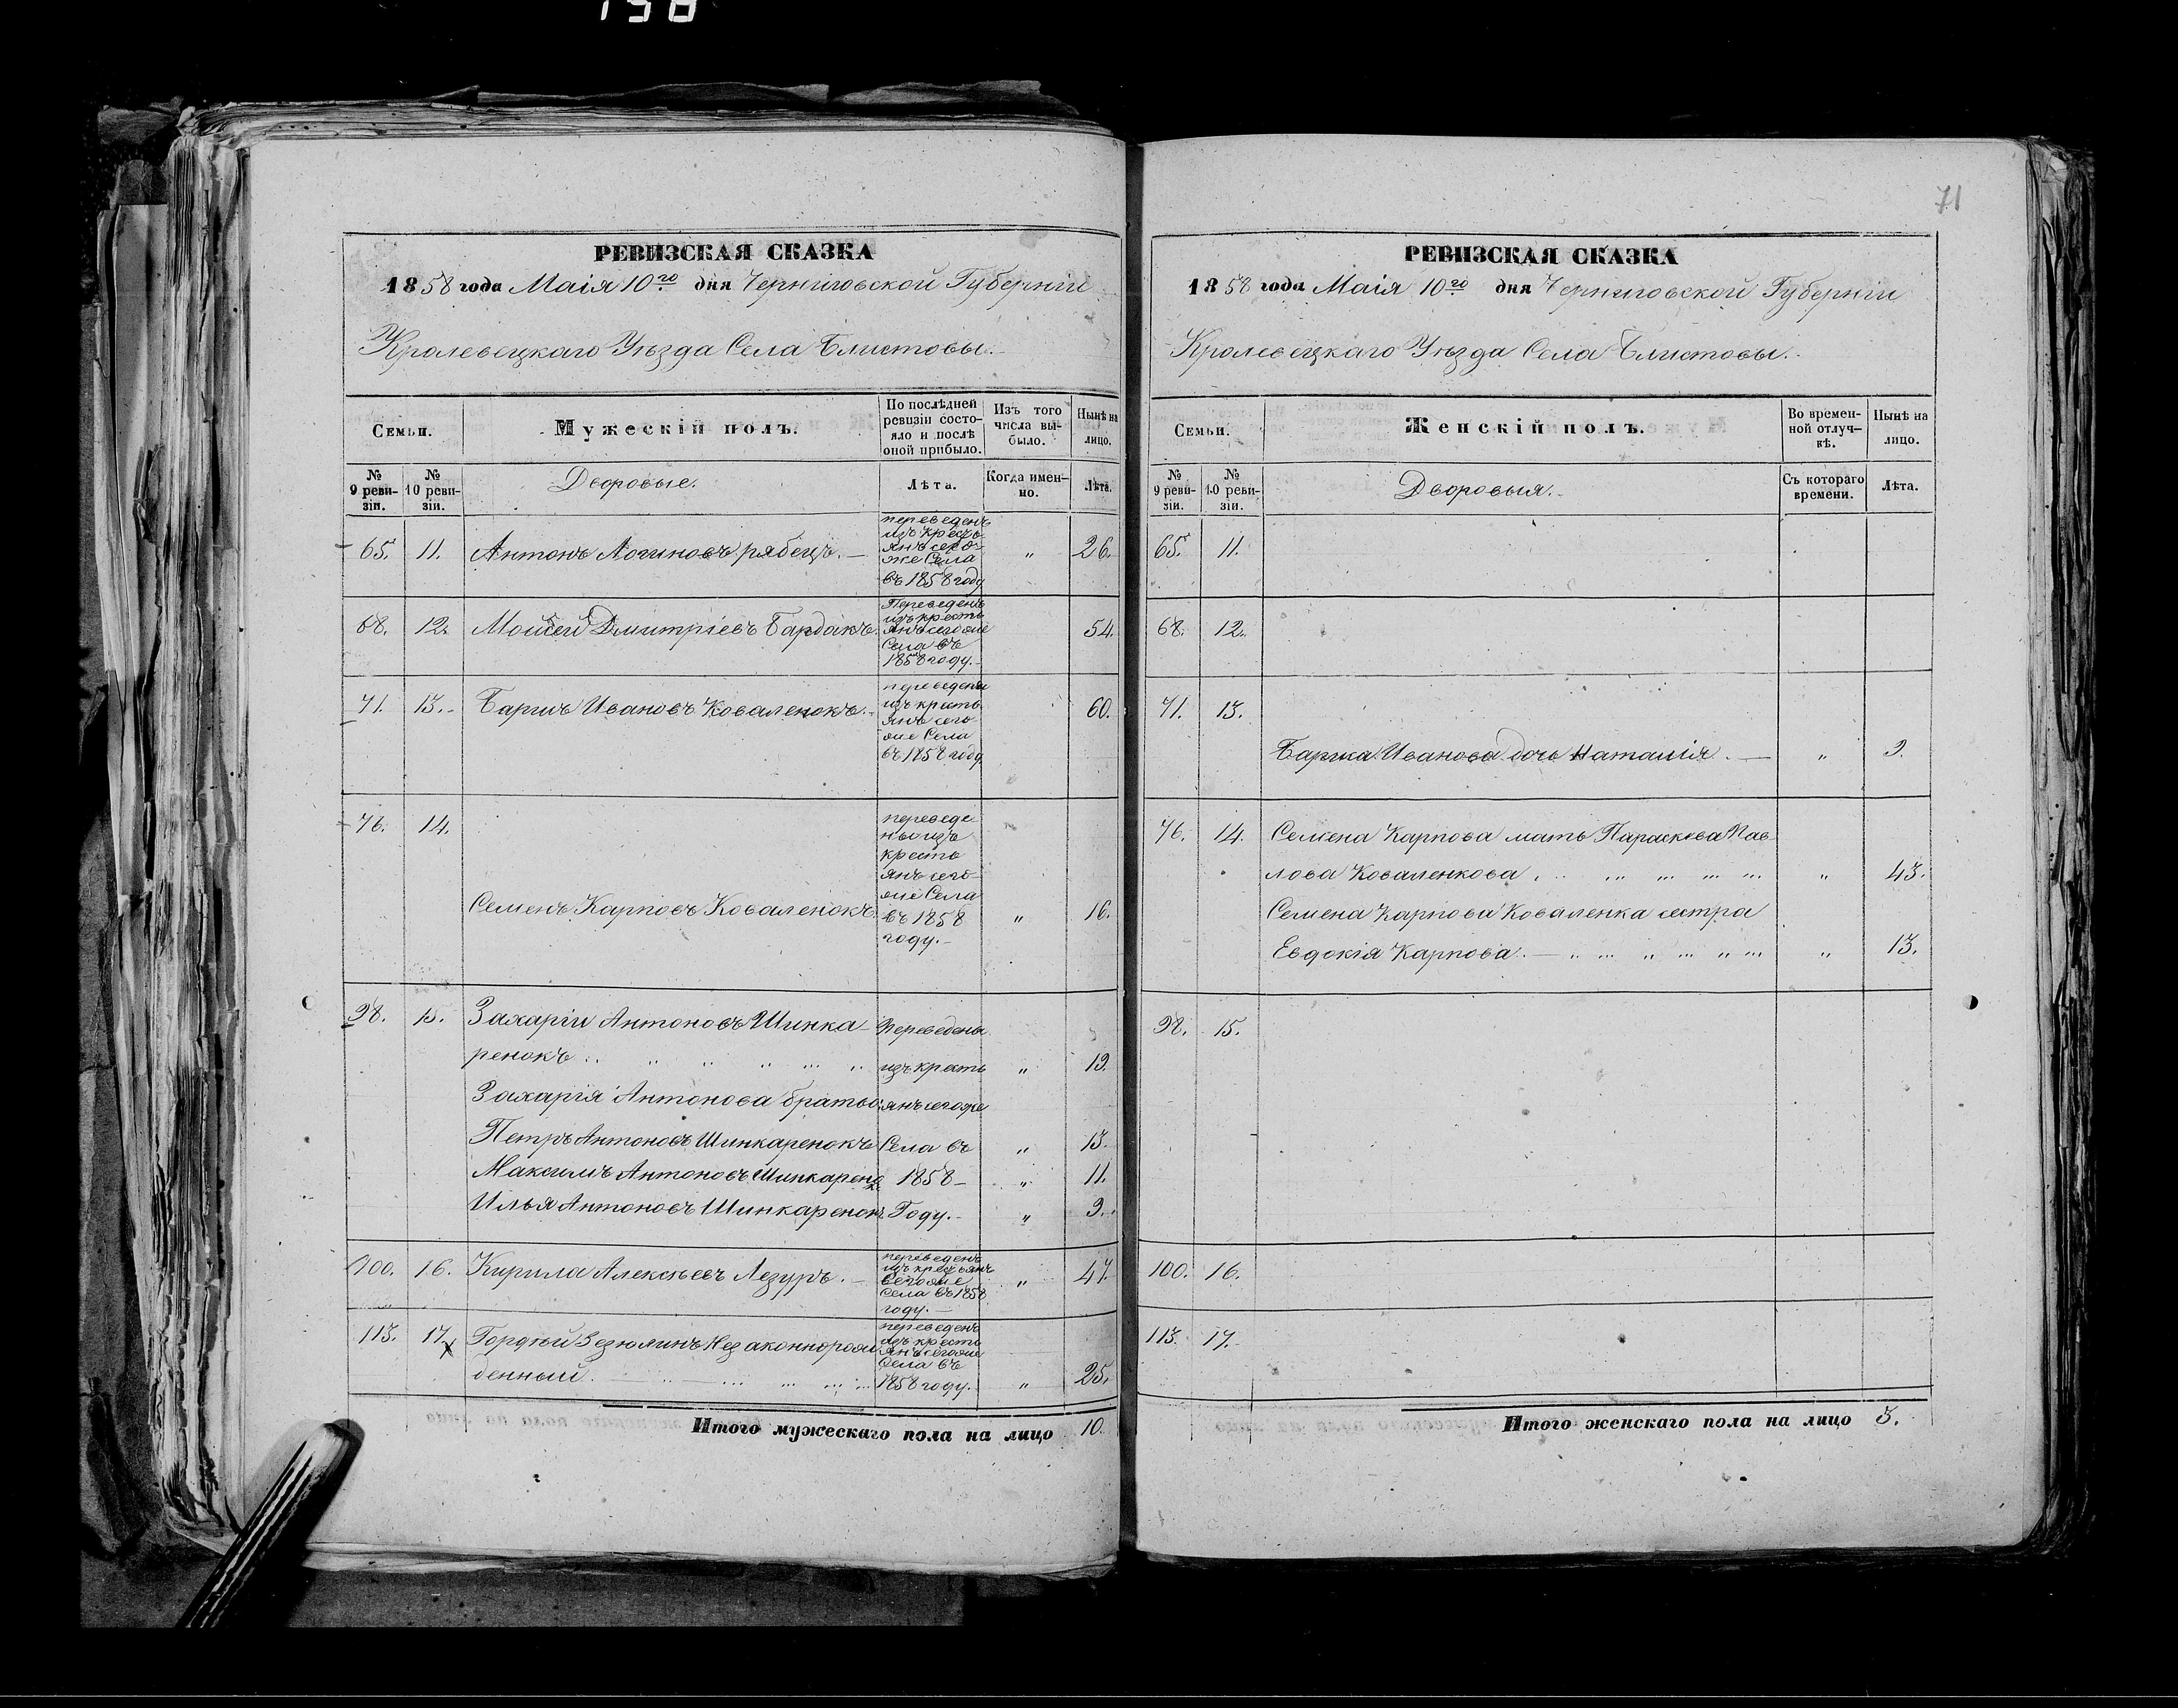 198
71
РЕВИЗСКАЯ СКАЗКА
1858 года Маія 10го дня Черниговской Губерніи
Кролевецкаго Уѣзда Села Блистовы.
Семьи.
Мужескій полъ.
По послѣдней ревизіи состояло и послѣ оной прибыло.
Изъ того числа выбыло.
Нынѣ на лицо.
№ 9 ревизіи.
№ 10 ревизіи.
Дворовые.
Лѣта.
Когда именно.
Лѣта.
переведенъ
изъ кресть
янъ сего
же Села
въ 1858 году
65. 11. Антонъ Логиновъ рябецъ. — „ 26.
Переведенъ
изъ кресть
янъ сегоже
Села въ
1858 году.
68. 12. Моисей Дмитріевъ Бардакъ. 54.
переведенъ
изъ кресть
янъ сего
же Села
въ 1858 году
71. 13. Иванов​ъ Коваленокъ. 60.
76. 14.
переведе
ны изъ
кресть
янъ сего
же Села
въ 1858
году.
Семенъ Карповъ Коваленокъ. „ 16.
98. 15. Захарій Антоновъ Шинка Переведены
ренокъ изъ кресть „ 19.
Захарія Антонова братья: янъ сегоже
Петръ Антоновъ Шинкаренокъ Села въ „ 13.
Максимъ Антоновъ Шинкаренок 1858 „ 11.
Илья Антоновъ Шинкаренок. Году. „ 9.
переведенъ
изъ крестьянъ
сегоже
села въ 1858
году.
100. 16. Кирила Алексѣевъ Лезуръ. „ 47.
переведенъ
изъ кресть
янъ сегоже
Села въ
1858 году.
113. 17. Гордѣй Зезюлинъ Незаконнорож
денный. „ 25.
Итого мужескаго пола на лицо 10.
РЕВИЗСКАЯ СКАЗКА
1858 года Маія 10го дня Черниговской Губерніи
Кролевецкаго Уѣзда Села Блистовы.
Семьи.
Женскій полъ.
Во временной отлучкѣ.
Нынѣ на лицо.
№ 9 ревизіи.
№ 10 ревизіи.
Дворовыя.
Съ котораго времени.
Лѣта.
65. 11.
68. 12.
71. 13.
Иванова дочь Наталія. — „ 9.
76. 14. Семена Карпова мать Параскева Пав
лова Коваленкова „ 43.
Семена Карпова Коваленка сестра
Евдокія Карпова. — „ 13.
98. 15.
100. 16.
113. 17.
Итого женскаго пола на лицо 3.